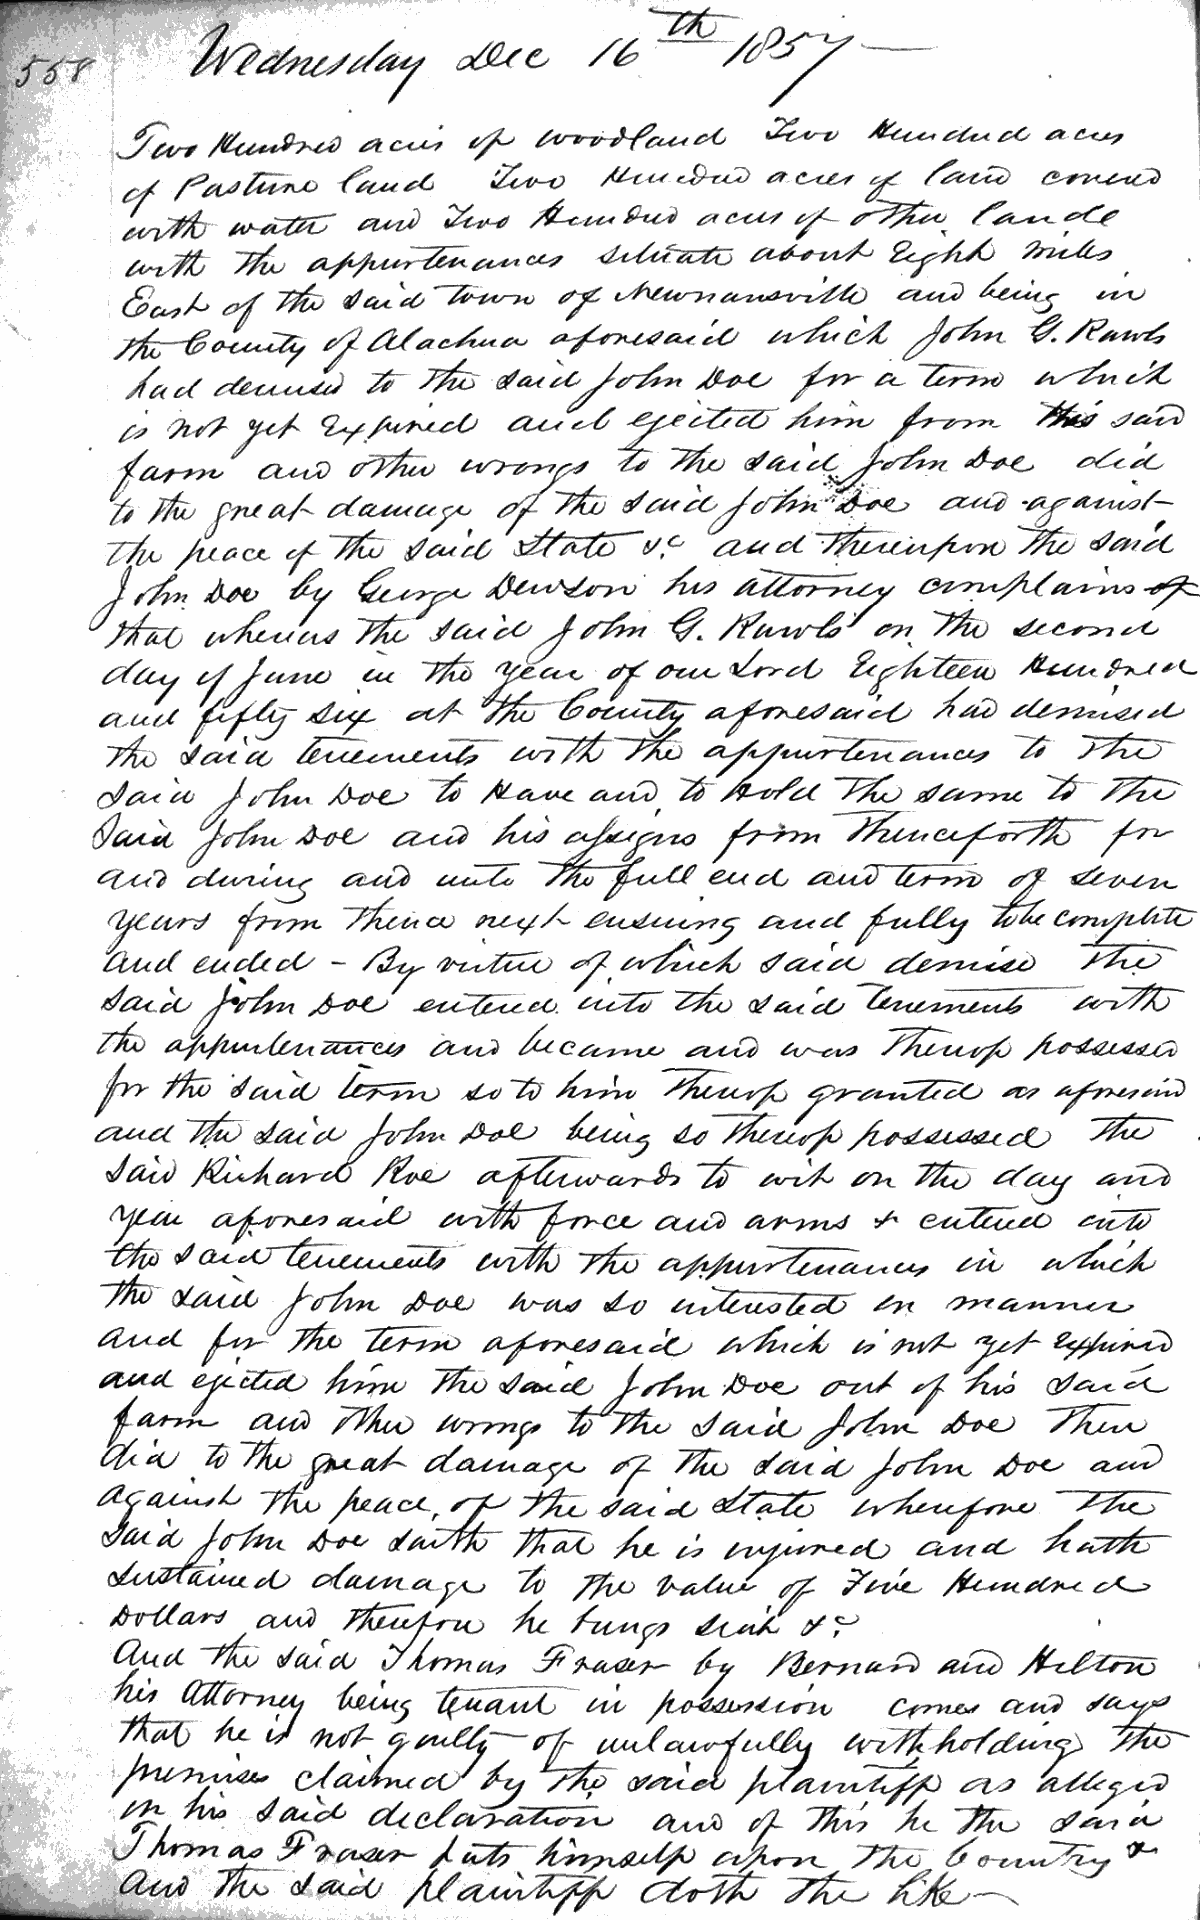 558
Wednesday Dec 16th 1857
Two Hundred acres of woodland Two Hundred acres
of Pasture land Two Hundred acres of land covered
with water and Two Hundred acres of other lande
with the appurtenances situate about Eight miles
East of the said town of Newnansville and being in
the County of Alachua aforesaid which John G. Rawls
had demised to the said John Doe for a term which
is not yet Expired and ejected him from this said
farm and other wrongs to the said John Doe did
to the great damage of the said John Doe and against
the peace of the said State &c and thereupon the said
John Doe by George Dewson his attorney complains of
that whereas the said John G. Rawls on the second
day of June in the year of our Lord Eighteen Hundred
and fifty six at the County aforesaid had demised
the said tenements with the appurtenances to the
said John Doe to Have and to Hold the same to the
said John Doe and his assigns from thenceforth for
and during and unto the full end and term of seven
years from thence next ensuing and fully to be complete
and ended - By virtue of which said demise the
said John Doe entered into the said Tenements with
the appurtenances and became and was thereof possessed
for the said term so to him thereof granted as aforesaid
and the said John Doe being so thereof possessed the
said Richard Roe afterwards to wit on the day and
year aforesaid with force and arms & entered into
the said tenements with the appurtenances in which
the said John Doe was so interested in manner
and for the term aforesaid which is not yet expired
and ejected him the said John Doe out of his said
farm and other wrongs to the said John Doe then
did to the great damage of the said John Doe and
against the peace, of the said State wherefore the
said John Doe saith that he is injured and hath
sustained damage to the value of Five Hundred
Dollars and therefore he brings suit &c
And the said Thomas Fraser by Bernard and Hilton
his Attorney being tenant in possession comes and says
that he is not guilty of unlawfully withholding the
premises claimed by the said plaintiff as alleged
in his said declaration and of this he the said
Thomas Fraser puts himself upon the Country &
And the said plaintiff doth the like